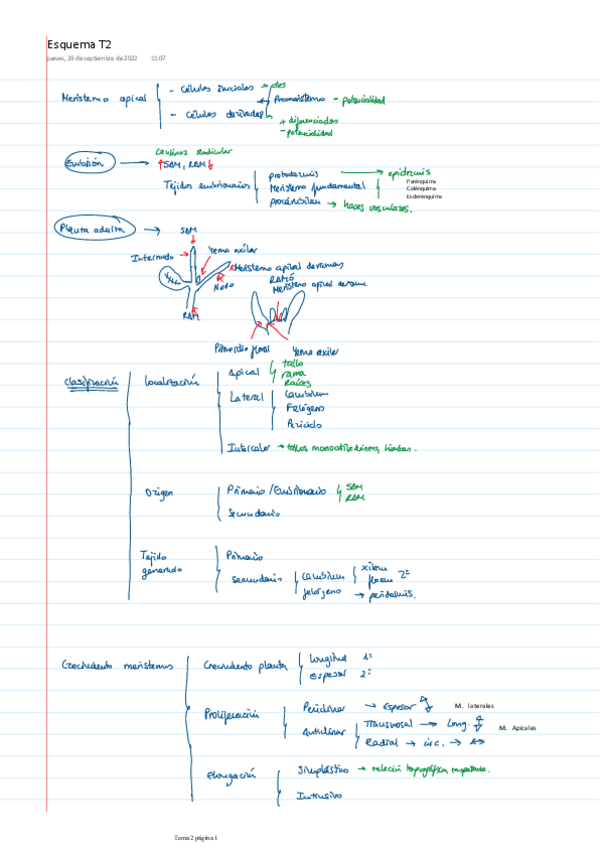 Esquema T2
jueves, 29 de septiembre de 2022 11:07
Meristemo apical
- Células iniciales
Promeristemo - potencialidad
- Células derivadas
+ diferenciadas
- potencialidad
Embrión
SAM, RAM
Tejidos embrionarios
protodermis → epidermis
Meristemo fundamental
Parénquima
Colénquima
Esclerénquima
procámbium → haces vasculares.
Planta adulta → SAM
Internudo
Yema axilar
Meristemo apical de ramas
Nudo
RAM
Primordio floral
Yema axilar
Clasificación
Localización
Apical
tallo
rama
raíces
Lateral
Cambium
Felógeno
Periciclo
Intercalar → tallos monocotiledóneas,
Origen
Primario / Embrionario
SAM
RAM
Secundario
Tejido generado
Primario
secundario
cambium
xilema
floema 2º
felógeno → peridermis.
Crecimiento meristemos
Crecimiento planta
longitud 1º
espesor 2º
Proliferación
Periclinar → Espesor
M. laterales
Anticlinar
Transversal → Long.
M. Apicales
Radial → circ. →
Elongación
Simplástico → relación topográfica
Intrusivo
Tema 2 página 1